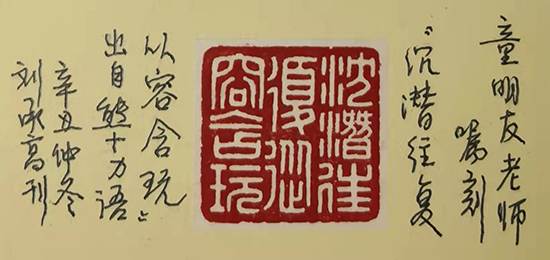 童明友老师
嘱刻
“沉潜往复
沈潛往
復從
容含玩
从容含玩”
出自熊十力语
辛丑仲冬
刘承高刊